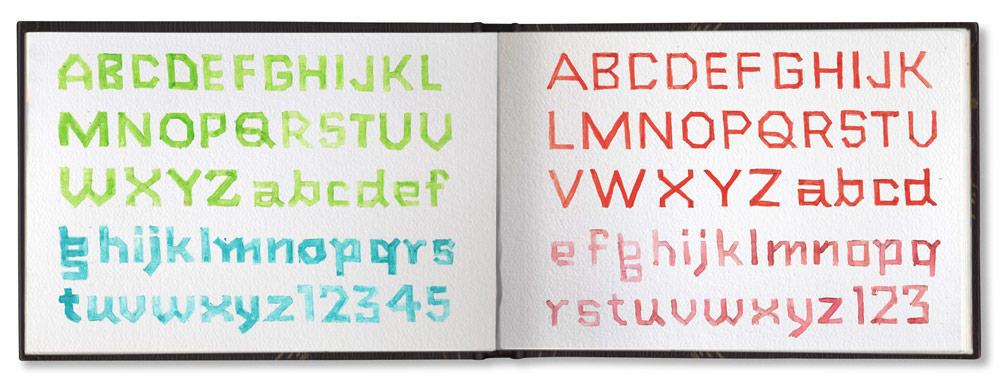 ABCDEFGHIJKL
MNOPQRSTUV
WXYZ abcdef
ghijklmnopqrs
tuvwxyz12345
ABCDEFGHIJK
LMNOPQRSTU
VWXYZ abcd
efghijklmnopq
rstuvwxyz123